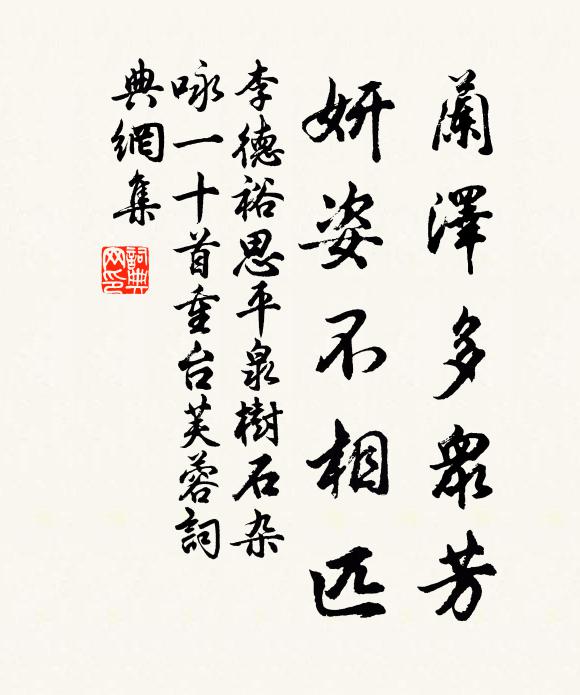 蘭澤多衆芳
妍姿不相匹
李德裕思平泉樹石杂
咏一十首重台芙蓉詞
典網集
詞典網印